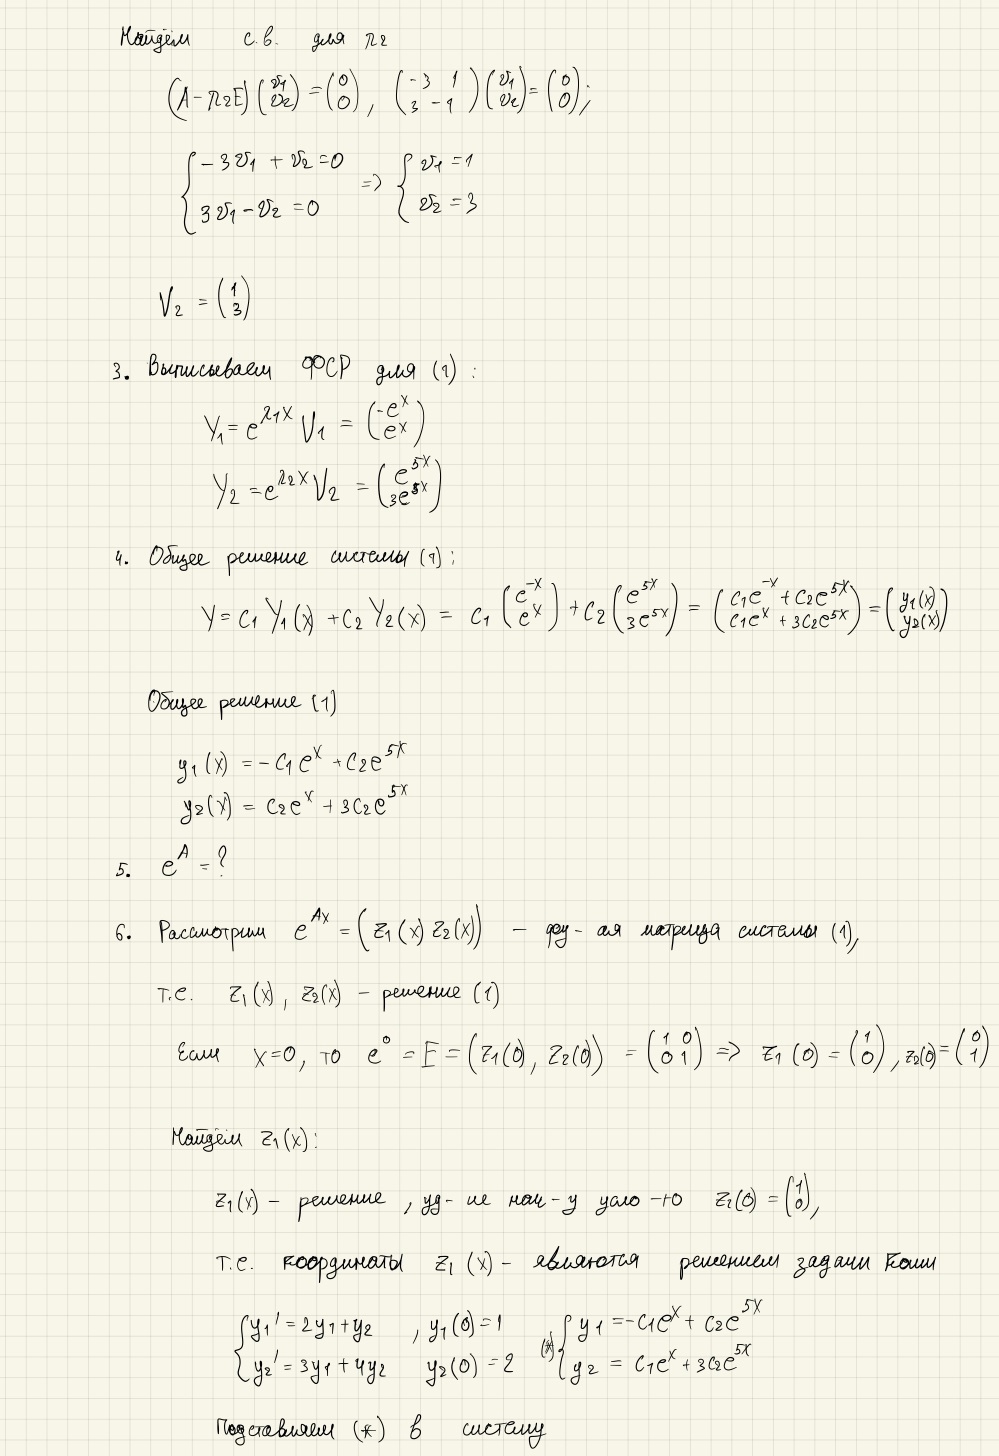 Найдём с.в. для λ2
(A - λ2E) (v1 v2) = (0 0), (-3 1 3 -1) (v1 v2) = (0 0);
{ -3v1 + v2 = 0 3v1 - v2 = 0 => { v1 = 1 v2 = 3
V2 = (1 3)
3. Выписываем ФСР для (1) :
Y1 = e^{λ1x} V1 = (-e^x e^x)
Y2 = e^{λ2x} V2 = (e^{5x} 3e^{5x})
4. Общее решение системы (1) :
Y = C1 Y1(x) + C2 Y2(x) = C1 (e^{-x} e^x) + C2 (e^{5x} 3e^{5x}) = (C1e^{-x} + C2e^{5x} C1e^x + 3C2e^{5x}) = (y1(x) y2(x))
Общее решение (1)
y1(x) = -C1e^x + C2e^{5x}
y2(x) = C2e^x + 3C2e^{5x}
5. e^A = ?
6. Рассмотрим e^{Ax} = (Z1(x) Z2(x)) - фу-ая матрица системы (1),
т.е. Z1(x), Z2(x) - решение (1)
Если x=0, то e^0 = E = (Z1(0), Z2(0)) = (1 0 0 1) => Z1(0) = (1 0), Z2(0) = (0 1)
Найдём Z1(x):
Z1(x) - решение, уд-ие нач-у усло-ю Z1(0) = (1 0),
т.е. координаты Z1(x) - являются решением задачи Коши
{ y1' = 2y1+y2 , y1(0)=1 y2' = 3y1+4y2 y2(0) = 2 (*) { y1 = -C1e^x + C2e^{5x} y2 = C1e^x + 3C2e^{5x}
Подставляем (*) в систему